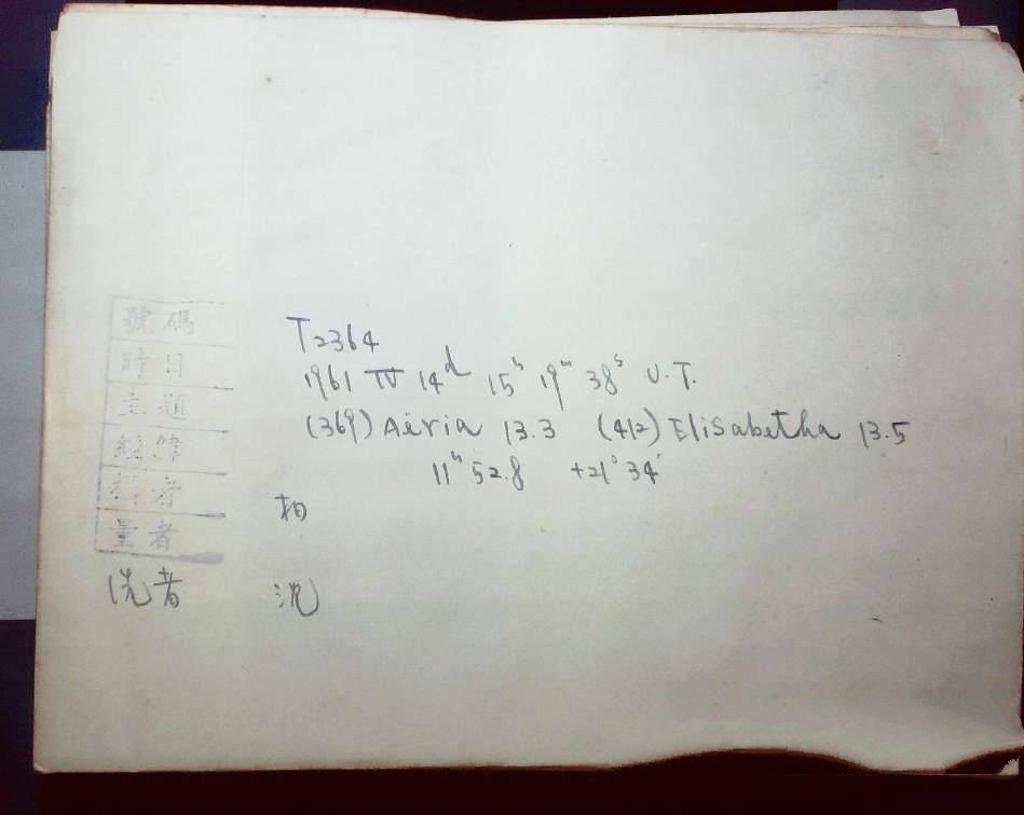 號碼 T2364
時日 1961 IV 14ᵈ 15ʰ 19ᵐ 38ˢ U.T.
主題 (369) Aëria 13.3 (412) Elisabetha 13.5
經緯 11ʰ 52.8 +21° 34′
者
量者
洗者 沈